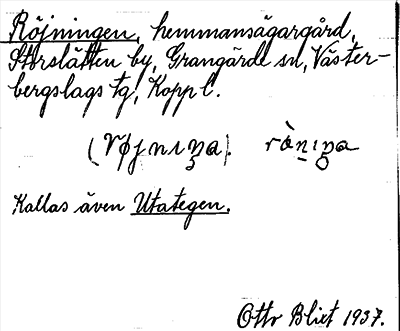 Röjningen, hemmansägargård,
Storslätten by, Grangärde sn, Väster-
bergslags tg, Kopp l.
Kallas även Utategen.
Otto Blixt 1937.